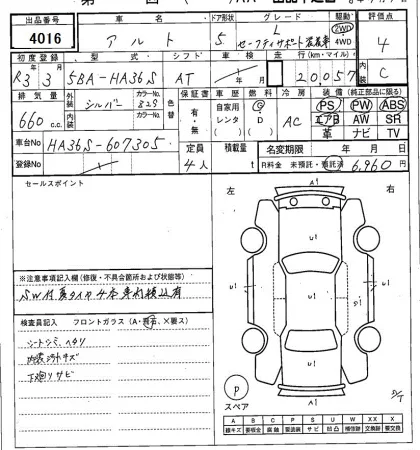 出品番号 車名 ドア形状 グレード 駆動 評価点
4016 アルト 5 L セーフティサポート装着車 2WD 4WD 4
初度登録 型式 シフト 車検 走行(km・マイル) 内装
R3年3月 5BA-HA36S AT 年 月 20,057 C
排気量 外装色 カラーNo. 色替 保証書 車歴 燃料 冷房 装備(純正部品に限る)
660 c.c. シルバー 829 有・無 自家用 レンタ G D AC PS PW ABS
エアB AW SR
革 ナビ TV
車台No HA36S-607305 定員 積載量 名変期限 年 月 日
登録No 4人 t R料金 未預託・預託済 6,960円
セールスポイント
左 右
A1
U1 U1 U1
U1
※注意事項記入欄(修復・不具合箇所および状態等)
SW付夏タイヤ4本車内積込有
検査員記入 フロントガラス(A・飛石、×要ス)
シートシミ、ヘタリ
内装汚キズ
下廻りサビ
P
スペア
A1
A B C P S U W X XX
線キズ 要板金 腐蝕 要塗装 サビ 凹凸 補修跡 要交換 交換済